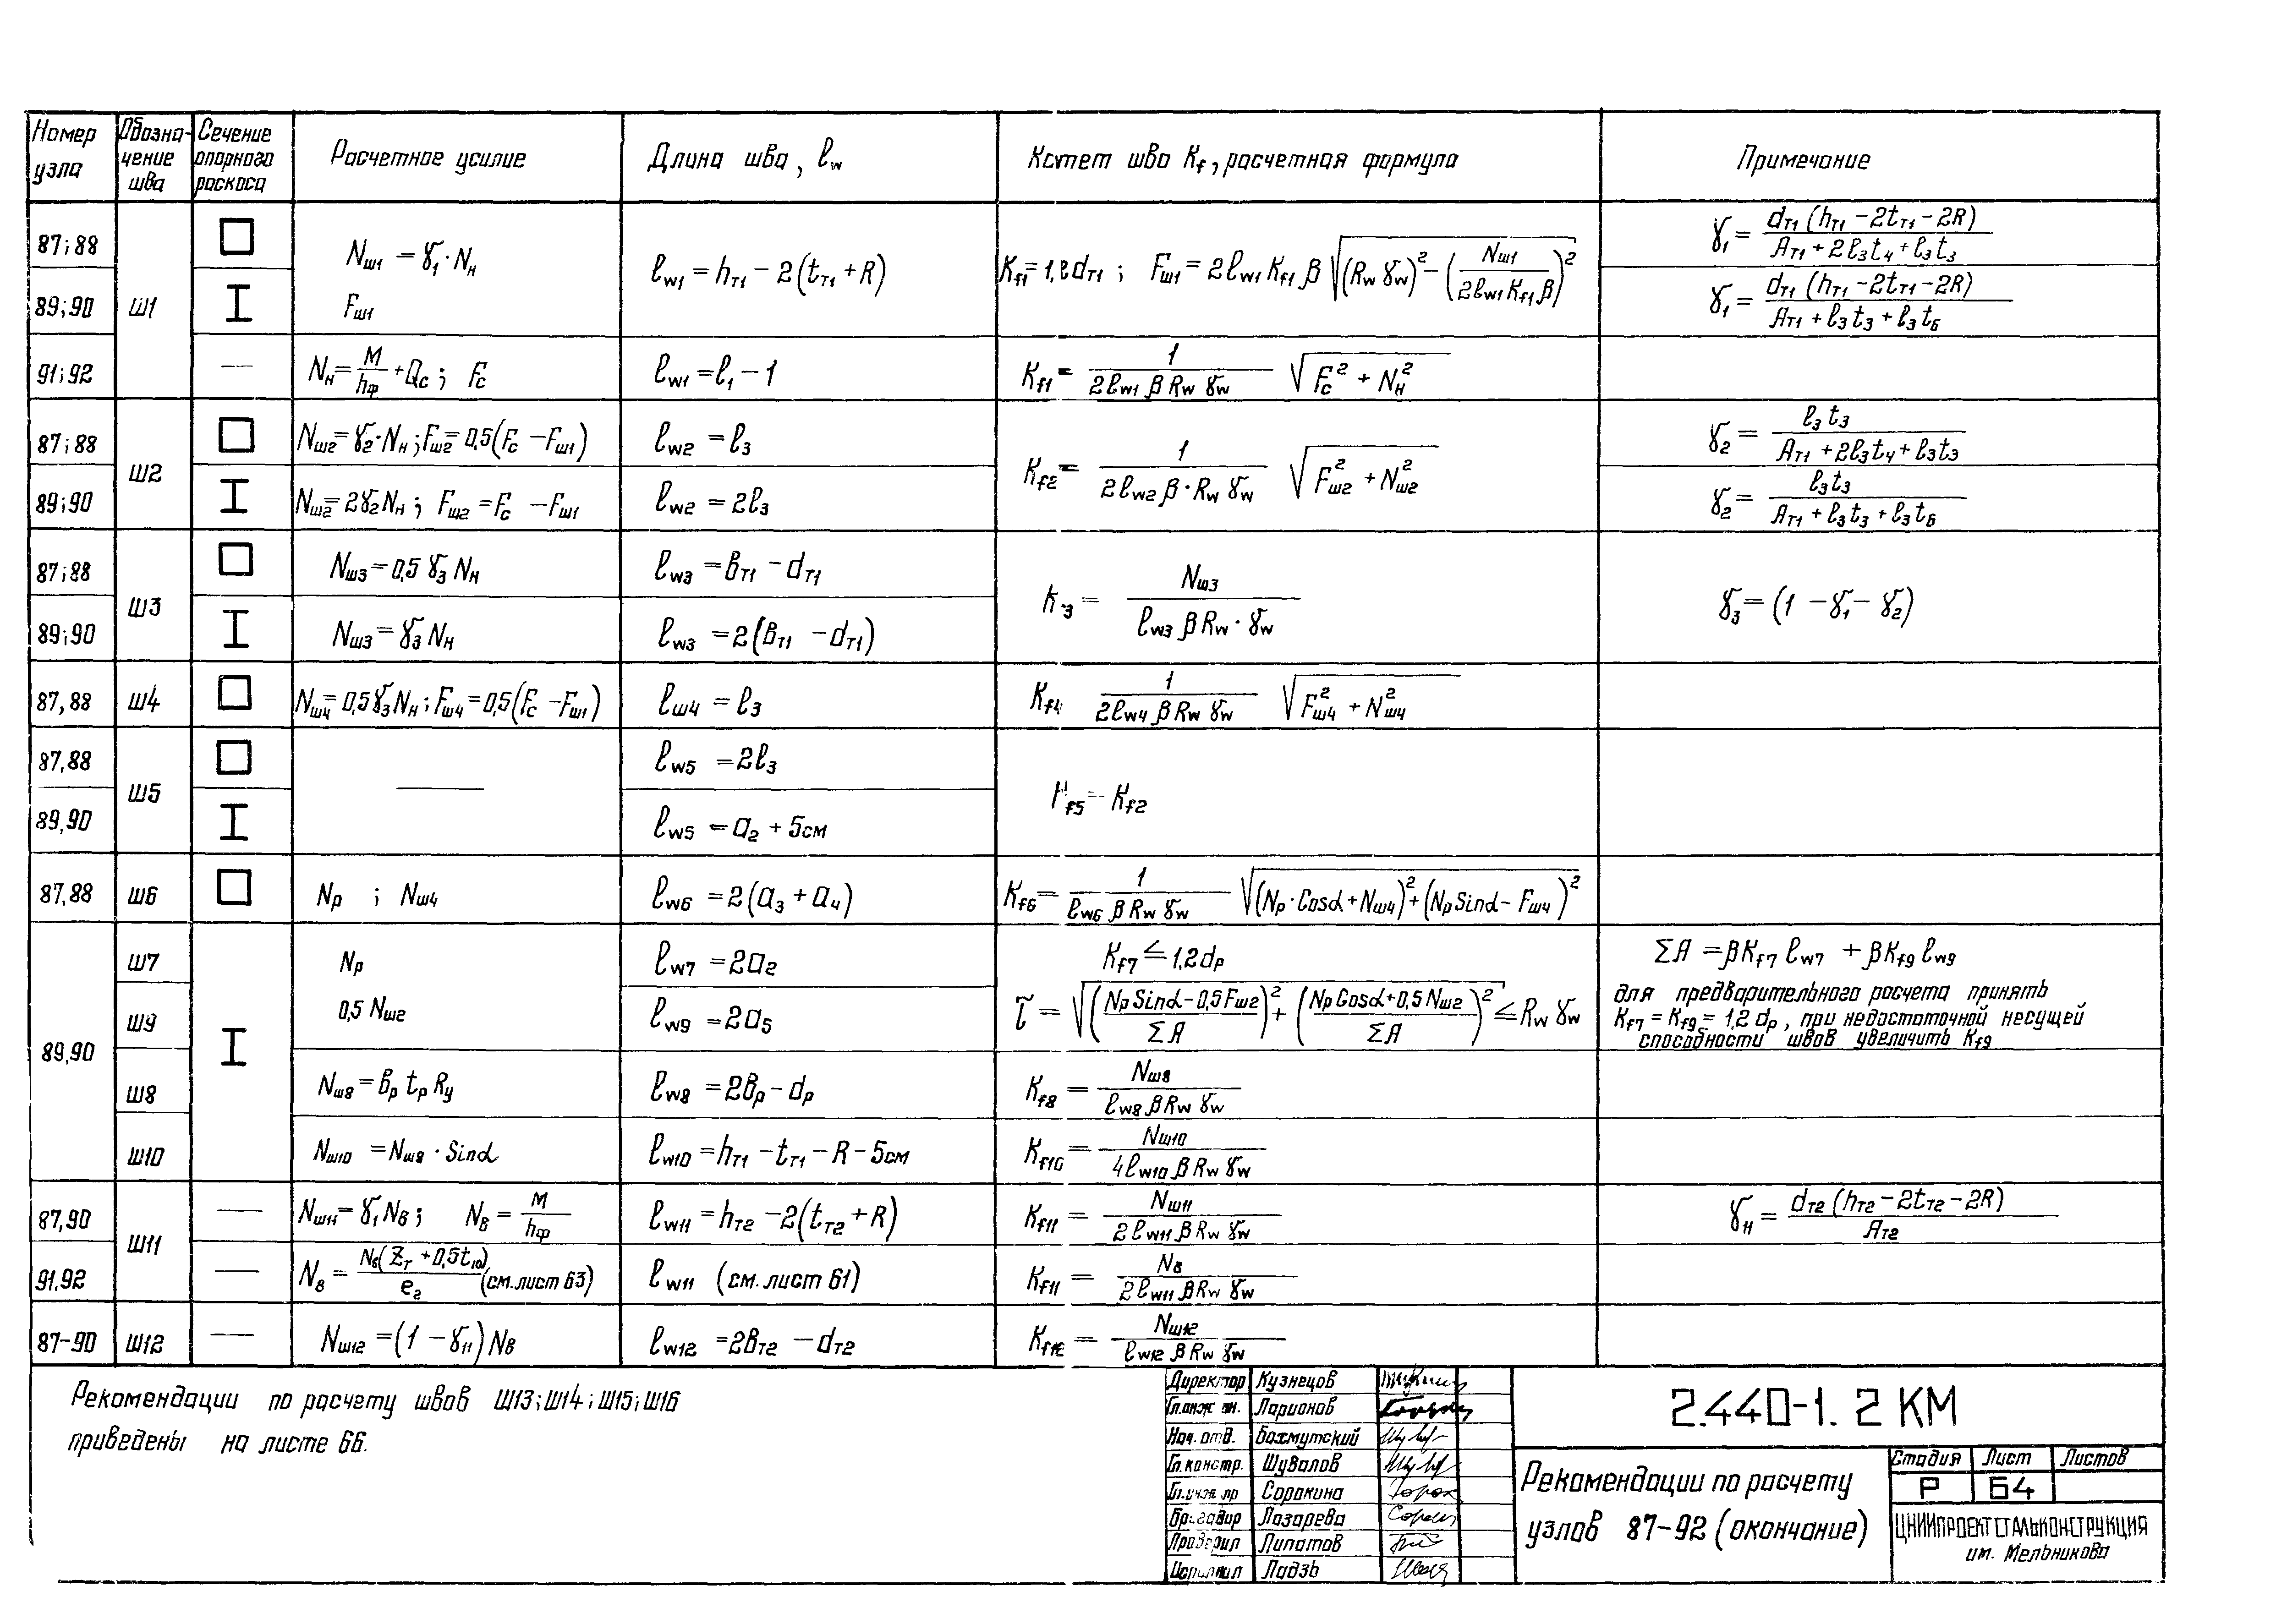 Номер узла | Обозначение шва | Сечение опорного раскоса | Расчетное усилие | Длина шва, ℓw | Катет шва Kf, расчетная формула | Примечание
87;88 | Ш1 | □ | Nш1 = γ1·Nн | ℓw1 = hт1 − 2(tт1 + R) | Kf1 = 1,2dт1 ; Fш1 = 2ℓw1 Kf1 β √((Rw γw)² − (Nш1 / (2ℓw1 Kf1 β))²) | γ1 = dт1 (hт1 − 2tт1 − 2R) / (Aт1 + 2ℓ3t4 + ℓ3t3)
89;90 | I | Fш1 | γ1 = dт1 (hт1 − 2tт1 − 2R) / (Aт1 + ℓ3t3 + ℓ3t6)
91;92 | — | Nн = M/hф + Qc ; Fc | ℓw1 = ℓ1 − 1 | Kf1 = 1 / (2ℓw1 β Rw γw) √(Fc² + Nн²)
87;88 | Ш2 | □ | Nш2 = γ2·Nн ; Fш2 = 0,5(Fc − Fш1) | ℓw2 = ℓ3 | Kf2 = 1 / (2ℓw2 β·Rw γw) √(Fш2² + Nш2²) | γ2 = ℓ3t3 / (Aт1 + 2ℓ3t4 + ℓ3t3)
89;90 | I | Nш2 = 2γ2Nн ; Fш2 = Fc − Fш1 | ℓw2 = 2ℓ3 | γ2 = ℓ3t3 / (Aт1 + ℓ3t3 + ℓ3t6)
87;88 | Ш3 | □ | Nш3 = 0,5 γ3 Nн | ℓw3 = bт1 − dт1 | K 3 = Nш3 / (ℓw3 β Rw·γw) | γ3 = (1 − γ1 − γ2)
89;90 | I | Nш3 = γ3 Nн | ℓw3 = 2(bт1 − dт1)
87,88 | Ш4 | □ | Nш4 = 0,5γ3Nн ; Fш4 = 0,5(Fc − Fш1) | ℓш4 = ℓ3 | Kf4 1 / (2ℓw4 β Rw γw) √(Fш4² + Nш4²)
87,88 | Ш5 | □ | — | ℓw5 = 2ℓ3 | Kf5 = Kf2
89,90 | I | ℓw5 = a2 + 5см
87,88 | Ш6 | □ | Nр ; Nш4 | ℓw6 = 2(a3 + a4) | Kf6 = 1 / (ℓw6 β Rw γw) √((Nр·Cosα + Nш4)² + (Nр Sinα − Fш4)²)
89,90 | Ш7 | I | Nр | ℓw7 = 2a2 | Kf7 ≤ 1,2dр | ΣA = βKf7 ℓw7 + βKf9 ℓw9
Ш9 | 0,5 Nш2 | ℓw9 = 2a5 | τ = √(((Nр Sinα − 0,5Fш2) / ΣA)² + ((Nр Cosα + 0,5Nш2) / ΣA)²) ≤ Rw γw
для предварительного расчета принять
Kf7 = Kf9 = 1,2 dр, при недостаточной несущей
способности швов увеличить Kf9
Ш8 | Nш8 = bр tр Rу | ℓw8 = 2bр − dр | Kf8 = Nш8 / (ℓw8 β Rw γw)
Ш10 | Nш10 = Nш8 · Sinα | ℓw10 = hт1 − tт1 − R − 5см | Kf10 = Nш10 / (4ℓw10 β Rw γw)
87,90 | Ш11 | — | Nш11 = γ1 Nв ; Nв = M/hф | ℓw11 = hт2 − 2(tт2 + R) | Kf11 = Nш11 / (2ℓw11 β Rw γw) | γ11 = dт2 (hт2 − 2tт2 − 2R) / Aт2
91,92 | — | Nв = Nб(Zт + 0,5t10) / e2 (см.лист 63) | ℓw11 (см.лист 61) | Kf11 = Nв / (2ℓw11 β Rw γw)
87−90 | Ш12 | — | Nш12 = (1 − γ11) Nв | ℓw12 = 2bт2 − dт2 | Kf12 = Nш12 / (ℓw12 β Rw γw)
Рекомендации по расчету швов Ш13; Ш14; Ш15; Ш16
приведены на листе 66.
Директор Кузнецов
Гл.инж. ин. Ларионов
Нач. отд. Бахмутский
Гл.констр. Шувалов
Гл.инж пр Сорокина
Бригадир Лазарева
Проверил Липатов
Исполнил Ладзь
2.440-1. 2 КМ
Рекомендации по расчету
узлов 87−92 (окончание)
Стадия Лист Листов
Р 64
ЦНИИПРОЕКТСТАЛЬКОНСТРУКЦИЯ
им. Мельникова